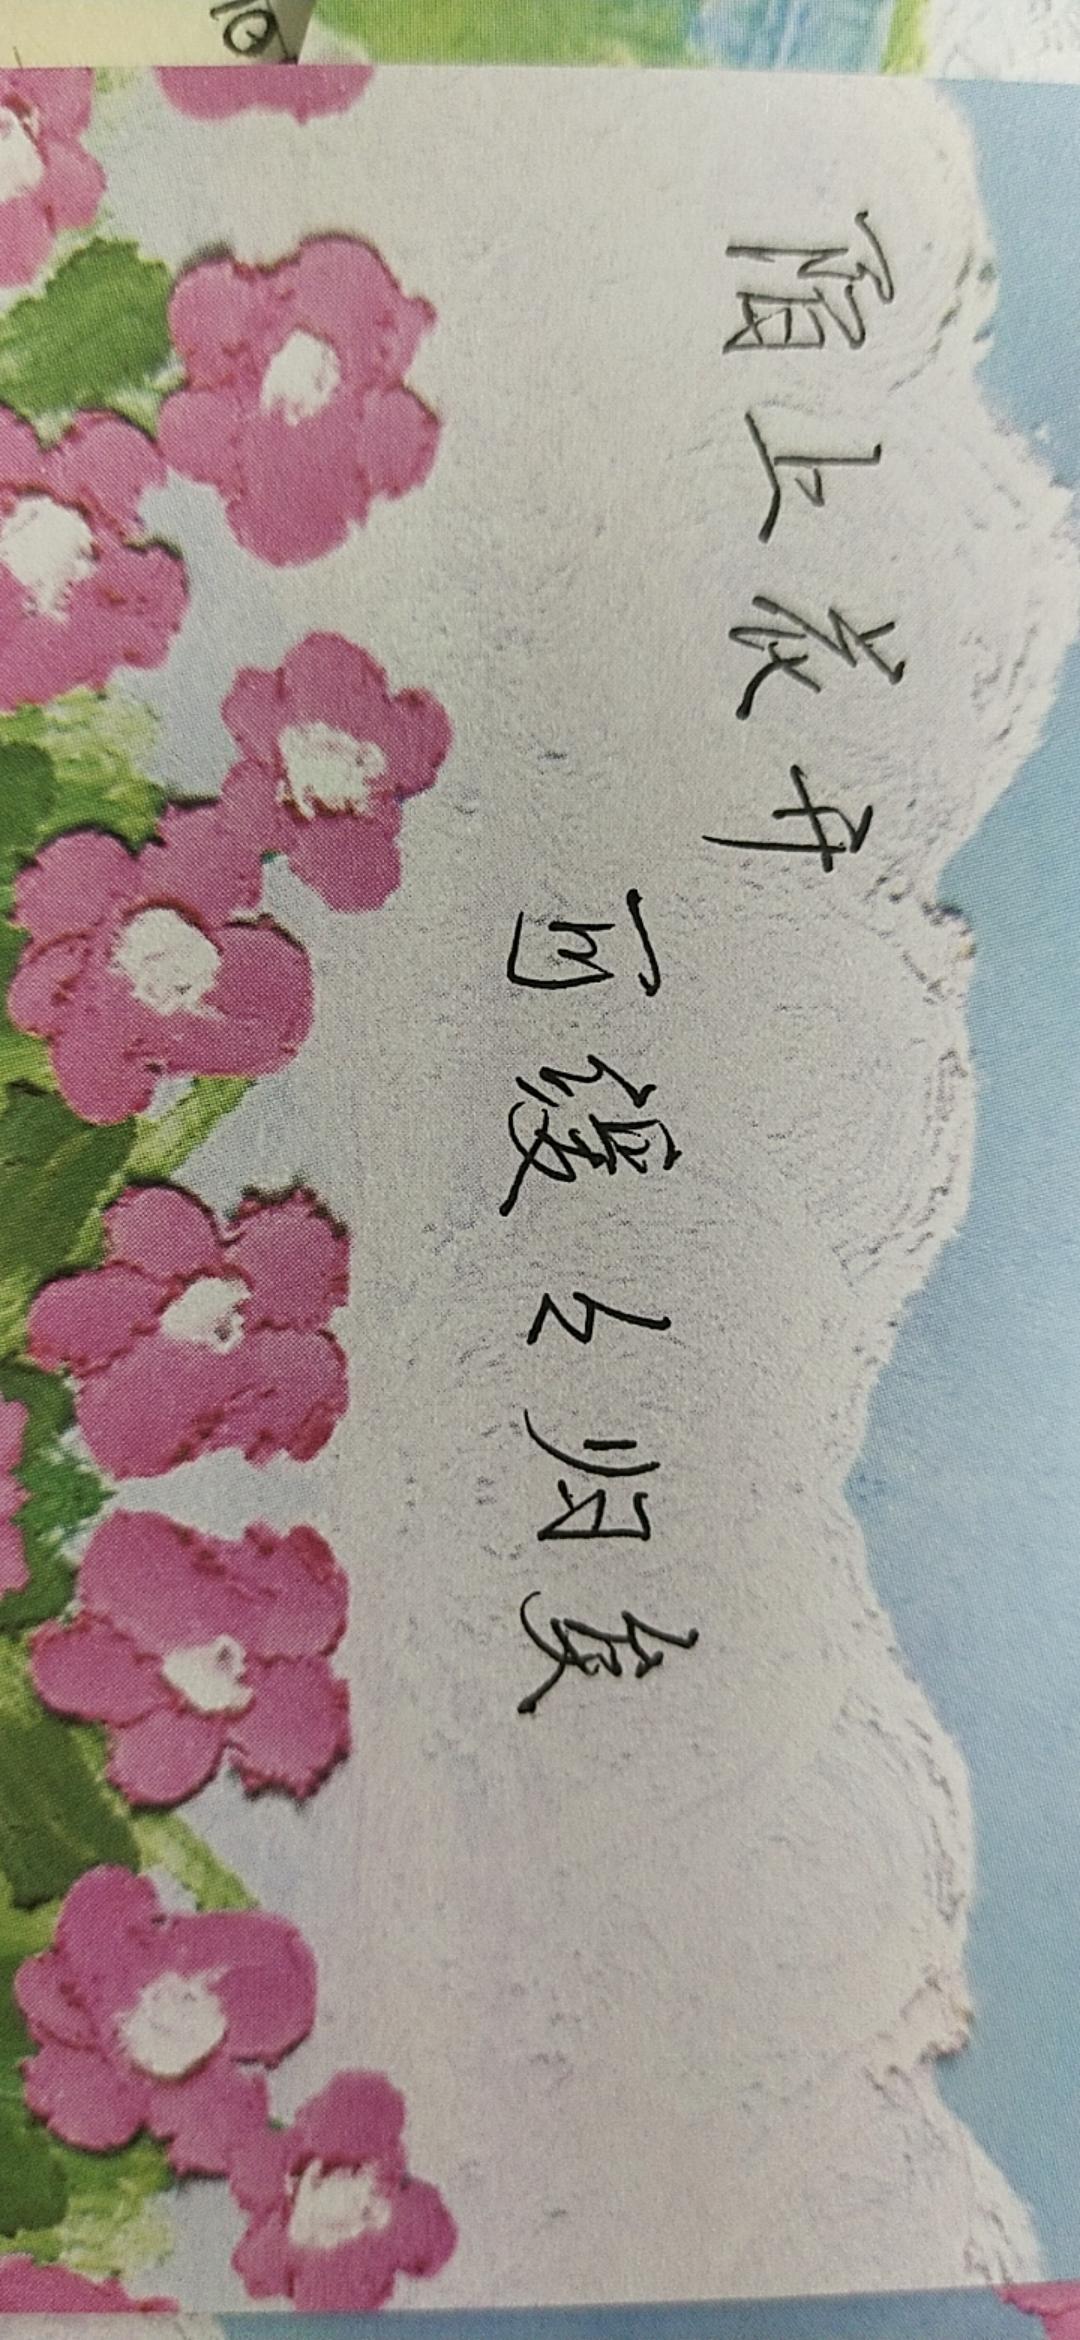 陌上花开
可缓々归矣